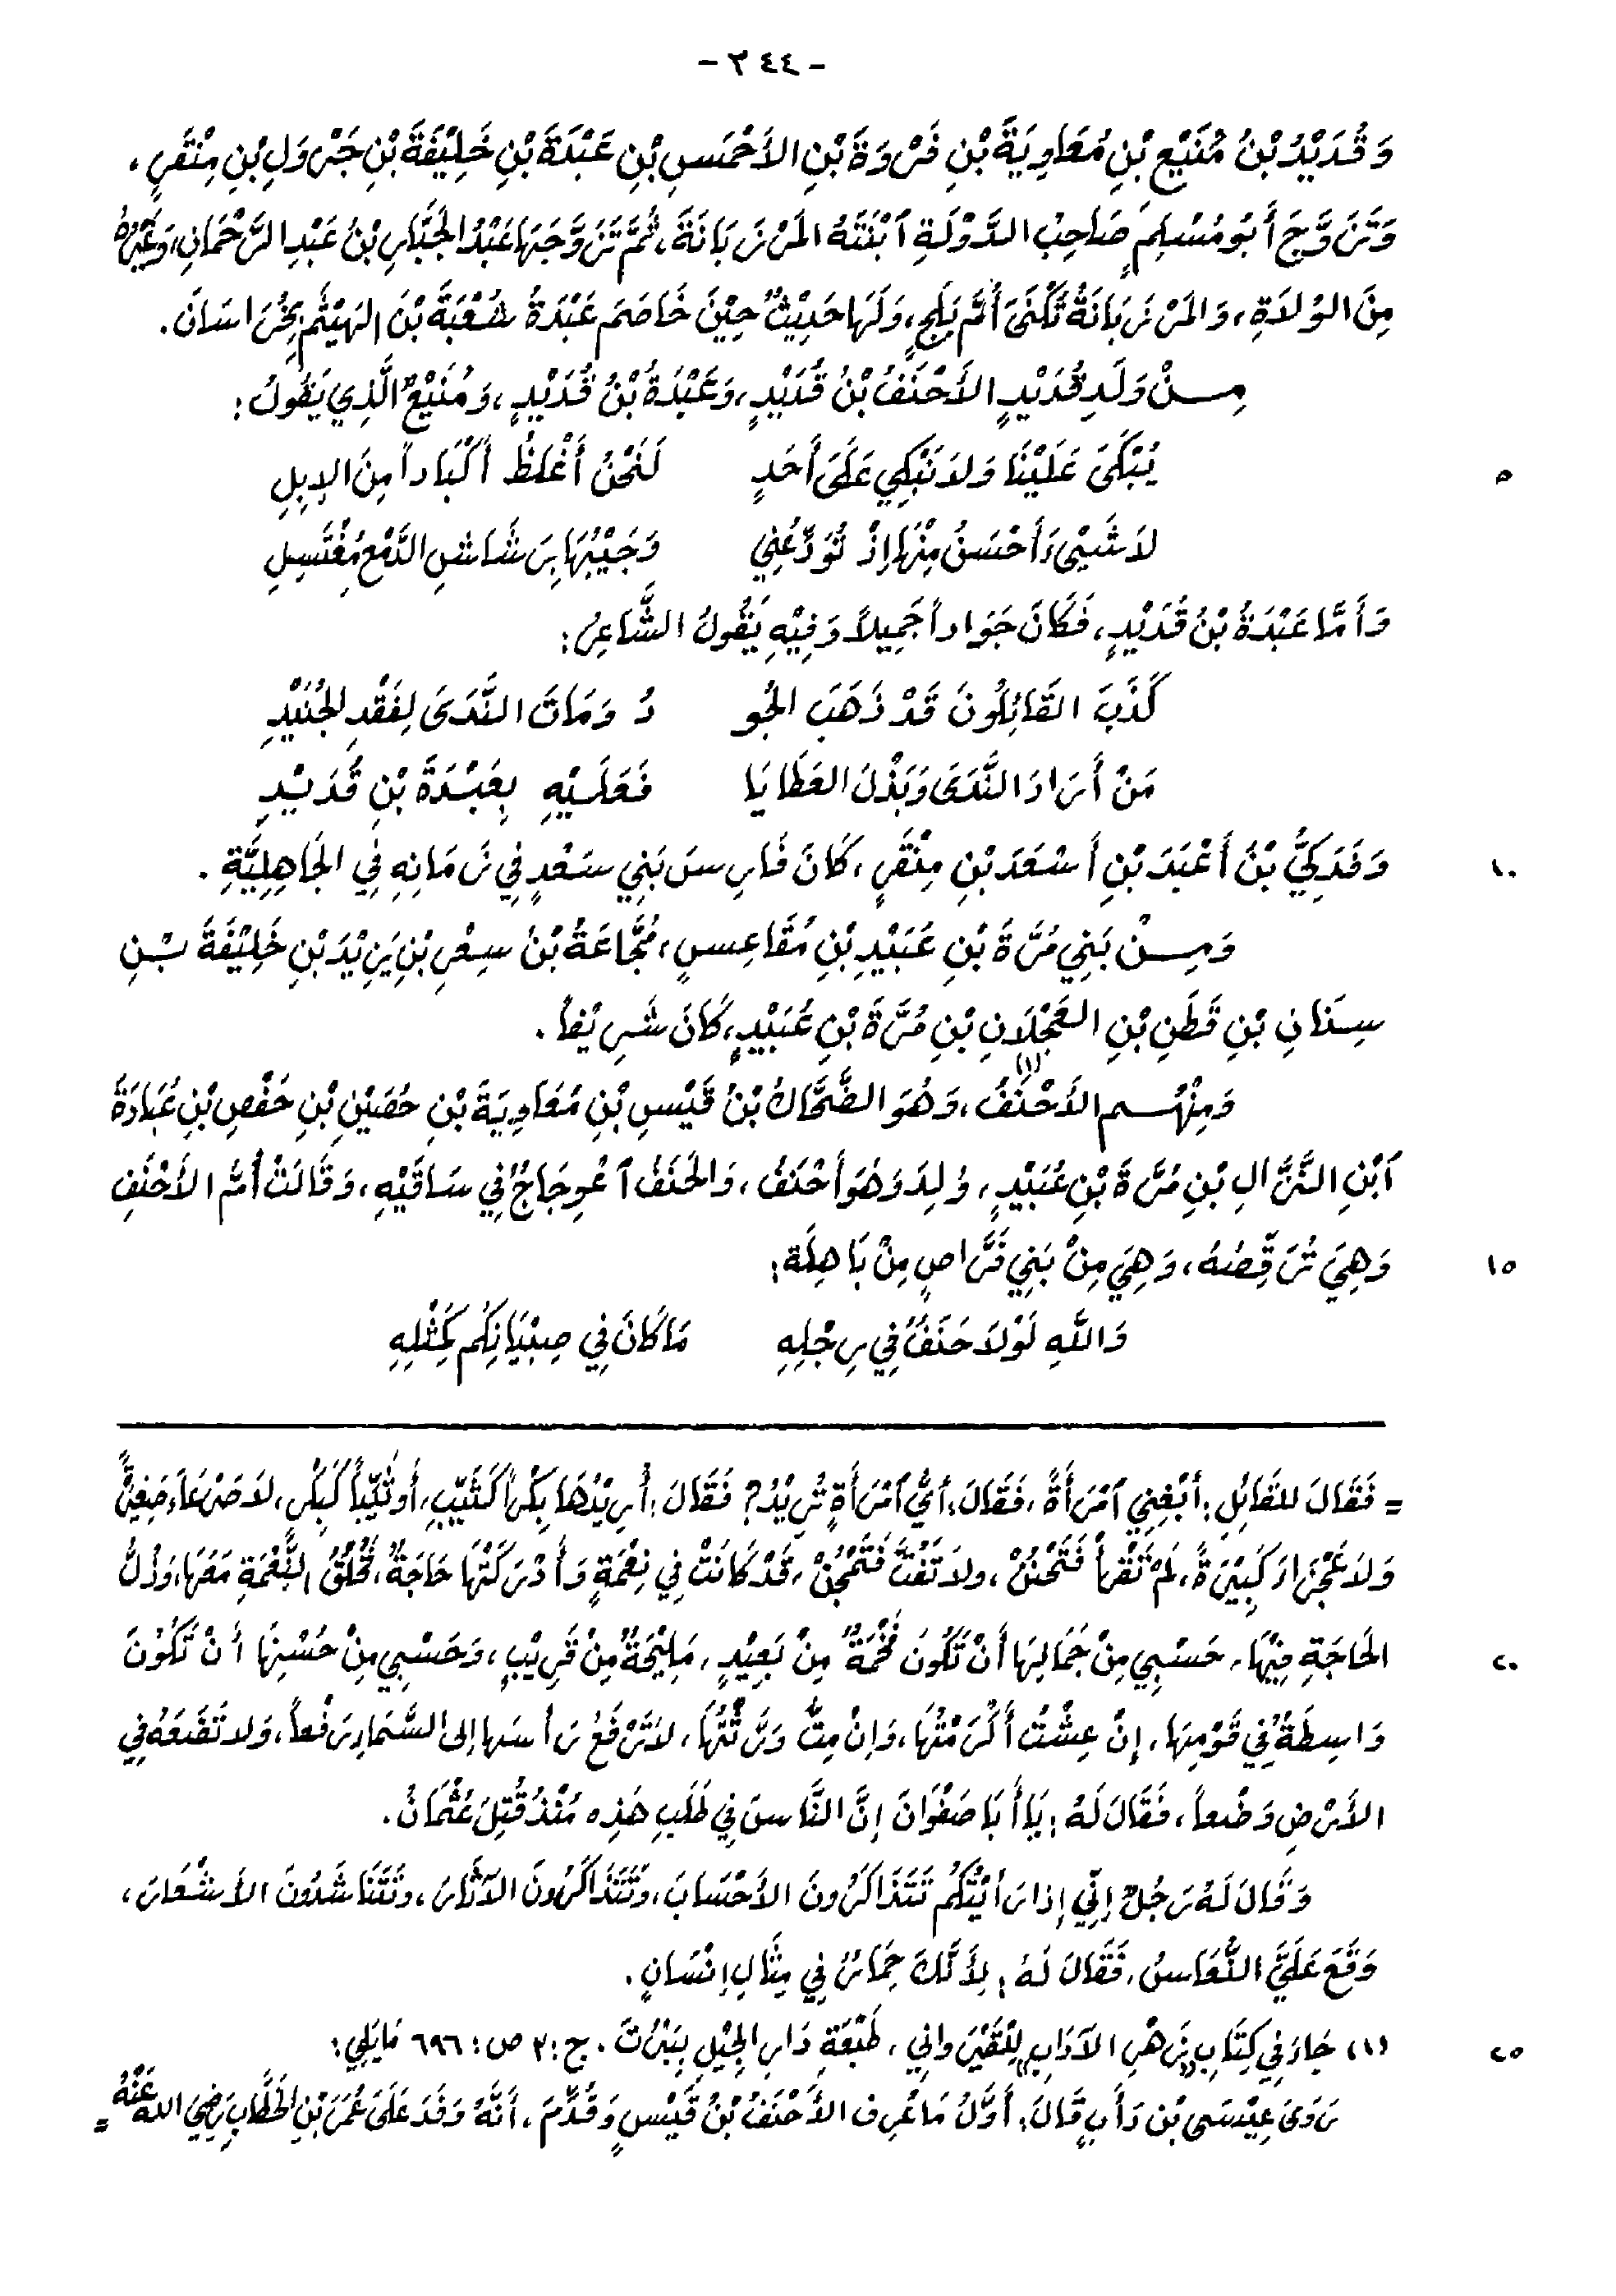 - ٢٤٤ -
وَقُدَيْدُ بْنُ مُنَيْعِ بْنِ مُعَاوِيَةَ بْنِ فَرْوَةَ بْنِ الأَحْمَسِ بْنِ عَبْدَةَ بْنِ خَلِيْفَةَ بْنِ جَرْوَلِ بْنِ مِنْقَرٍ،
وَتَزَوَّجَ أَبُو مُسْلِمٍ صَاحِبُ الدَّوْلَةِ ٱبْنَتَهُ المَرْزَبَانَةَ، ثُمَّ تَزَوَّجَهَا عَبْدُ الجَبَّارِ بْنُ عَبْدِ الرَّحْمَانِ، وَغَيْرُهُ
مِنَ الوُلاَةِ، وَالمَرْزَبَانَةُ تُكْنَى أُمَّ بَلْجٍ، وَلَهَا حَدِيْثٌ حِيْنَ خَاصَمَ عَبْدَةُ شُعْبَةَ بْنَ الهَيْثَمِ بِخُرَاسَانَ.
مِنْ وَلَدِ قُدَيْدٍ الأَحْنَفُ بْنُ قُدَيْدٍ، وَعَبْدَةُ بْنُ قُدَيْدٍ، وَمُنَيْعٌ الَّذِي يَقُولُ:
يُبْكَى عَلَيْنَا وَلاَ نَبْكِي عَلَى أَحَدٍ لَنَحْنُ أَغْلَظُ أَكْبَاداً مِنَ الإِبِلِ ٥
لاَ شَيْىءَ أَحْسَنُ مِنْهَا إِذْ تُوَدِّعُنِي وَجَيْبُهَا بِرَشَاشِ الدَّمْعِ مُغْتَسِلِ
وَأَمَّا عَبْدَةُ بْنُ قُدَيْدٍ، فَكَانَ جَوَاداً جَمِيلاً وَفِيْهِ يَقُولُ الشَّاعِرُ:
كَذَبَ القَائِلُونَ قَدْ ذَهَبَ الجُو دُ وَمَاتَ النَّدَى لِفَقْدِ الجُنَيْدِ
مَنْ أَرَادَ النَّدَى وَبَذْلَ العَطَايَا فَعَلَيْهِ بِعَبْدَةَ بْنِ قُدَيْدِ
وَفَدَكِيُّ بْنُ أَعْبَدَ بْنِ أَسْعَدَ بْنِ مِنْقَرٍ، كَانَ فَارِسَ بَنِي سَعْدٍ فِي زَمَانِهِ فِي الجَاهِلِيَّةِ. ١٠
وَمِنْ بَنِي مُرَّةَ بْنِ عُبَيْدِ بْنِ مُقَاعِسٍ، مُجَّاعَةُ بْنُ سِعْرِ بْنِ يَزِيْدَ بْنِ خَلِيْفَةَ بْنِ
سِنَانِ بْنِ قَطَنِ بْنِ العَجْلاَنِ بْنِ مُرَّةَ بْنِ عُبَيْدٍ، كَانَ شَرِيْفاً.
وَمِنْهُم الأَحْنَفُ (١)، وَهُوَ الضَّحَّاكُ بْنُ قَيْسِ بْنِ مُعَاوِيَةَ بْنِ حُصَيْنِ بْنِ حَفْصِ بْنِ عُبَادَةَ
ٱبْنِ النَّزَّالِ بْنِ مُرَّةَ بْنِ عُبَيْدٍ، وُلِدَ وَهُوَ أَحْنَفُ، وَالحَنَفُ ٱعْوِجَاجٌ فِي سَاقَيْهِ، وَقَالَتْ أُمُّ الأَحْنَفِ
وَهِيَ تُرَقِّصُهُ، وَهِيَ مِنْ بَنِي فَرَّاصٍ مِنْ بَاهِلَةَ: ١٥
وَاللَّهِ لَوْلاَ حَنَفٌ فِي رِجْلِهِ مَا كَانَ فِي صِبْيَانِكُم كَمِثْلِهِ
= فَقَالَ للقَائِلِ: أَبْغِنِي ٱمْرَأَةً، فَقَالَ: أَيُّ ٱمْرَأَةٍ تُرِيْدُ؟ فَقَالَ: أُرِيْدُهَا بِكْراً كَثَيِّبٍ، أَو ثَيِّباً كَبِكْرٍ، لاَ ضَرْعَاءَ صَغِيْرَةً
وَلاَ عَجُزَاً كَبِيْرَةً، لَمْ تَقْرَأْ فَتَحْنُنْ، وَلاَ تَفُتَّ فَتَمْجُنْ، قَدْ كَانَتْ فِي نِعْمَةٍ وَأَدْرَكَتْهَا حَاجَةٌ، فَخُلُقُ النِّعْمَةِ مَعَهَا، وَذُلُّ
الحَاجَةِ فِيْهَا، حَسْبِي مِنْ جَمَالِهَا أَنْ تَكُونَ فَخْمَةً مِنْ بَعِيْدٍ، مَلِيْحَةً مِنْ قَرِيْبٍ، وَحَسْبِي مِنْ حُسْنِهَا أَنْ تَكُونَ ٢٠
وَاسِطَةً فِي قَوْمِهَا، إِنْ عِشْتُ أَكْرَمْتُهَا، وَإِنْ مِتُّ وَرَّثْتُهَا، لاَ تَرْفَعُ رَأسَها إلى السَّمَاءِ رَفْعاً، وَلا تَضَعَهُ فِي
الأَرْضِ وَضْعاً، فَقَالَ لَهُ: يَا أَبَا صَفْوَانَ إِنَّ النَّاسَ فِي طَلَبِ هَذِهِ مُنْذُ قُتِلَ عُثْمَانُ.
وَقَالَ لَهُ رَجُلٌ إِنِّي إِذَا رَأَيْتُكُم تَتَذَاكَرُونَ الأَحْسَابَ، وَتَتَذَاكَرُونَ الآثَارَ، وتَتَنَاشَدُونَ الأَشْعَارَ،
وَقَعَ عَلَيَّ النُّعَاسُ، فَقَالَ لَهُ: لِأَنَّكَ حِمَارٌ فِي مِثَالِ إِنْسَانٍ.
(١) جَاءَ فِي كِتَابِ «زَهْرِ الآدَابِ» لِلْقَيْرَوانِي، طَبْعَةِ دَارِ الجِيْلِ بِبَيْرُتَ. ج: ٢ ص: ٦٩٦ مَا يَلِي: ٢٥
رَوَى عِيْسَى بْن دَأَبٍ قَالَ: أَوَّلُ مَا عُرِفَ الأَحْنَفُ بْنُ قَيْسٍ وَقُدِّمَ، أَنَّهُ وَفَدَ عَلَى عُمَرَ بْنِ الخَطَّابِ رَضِيَ اللهُ عَنْهُ =